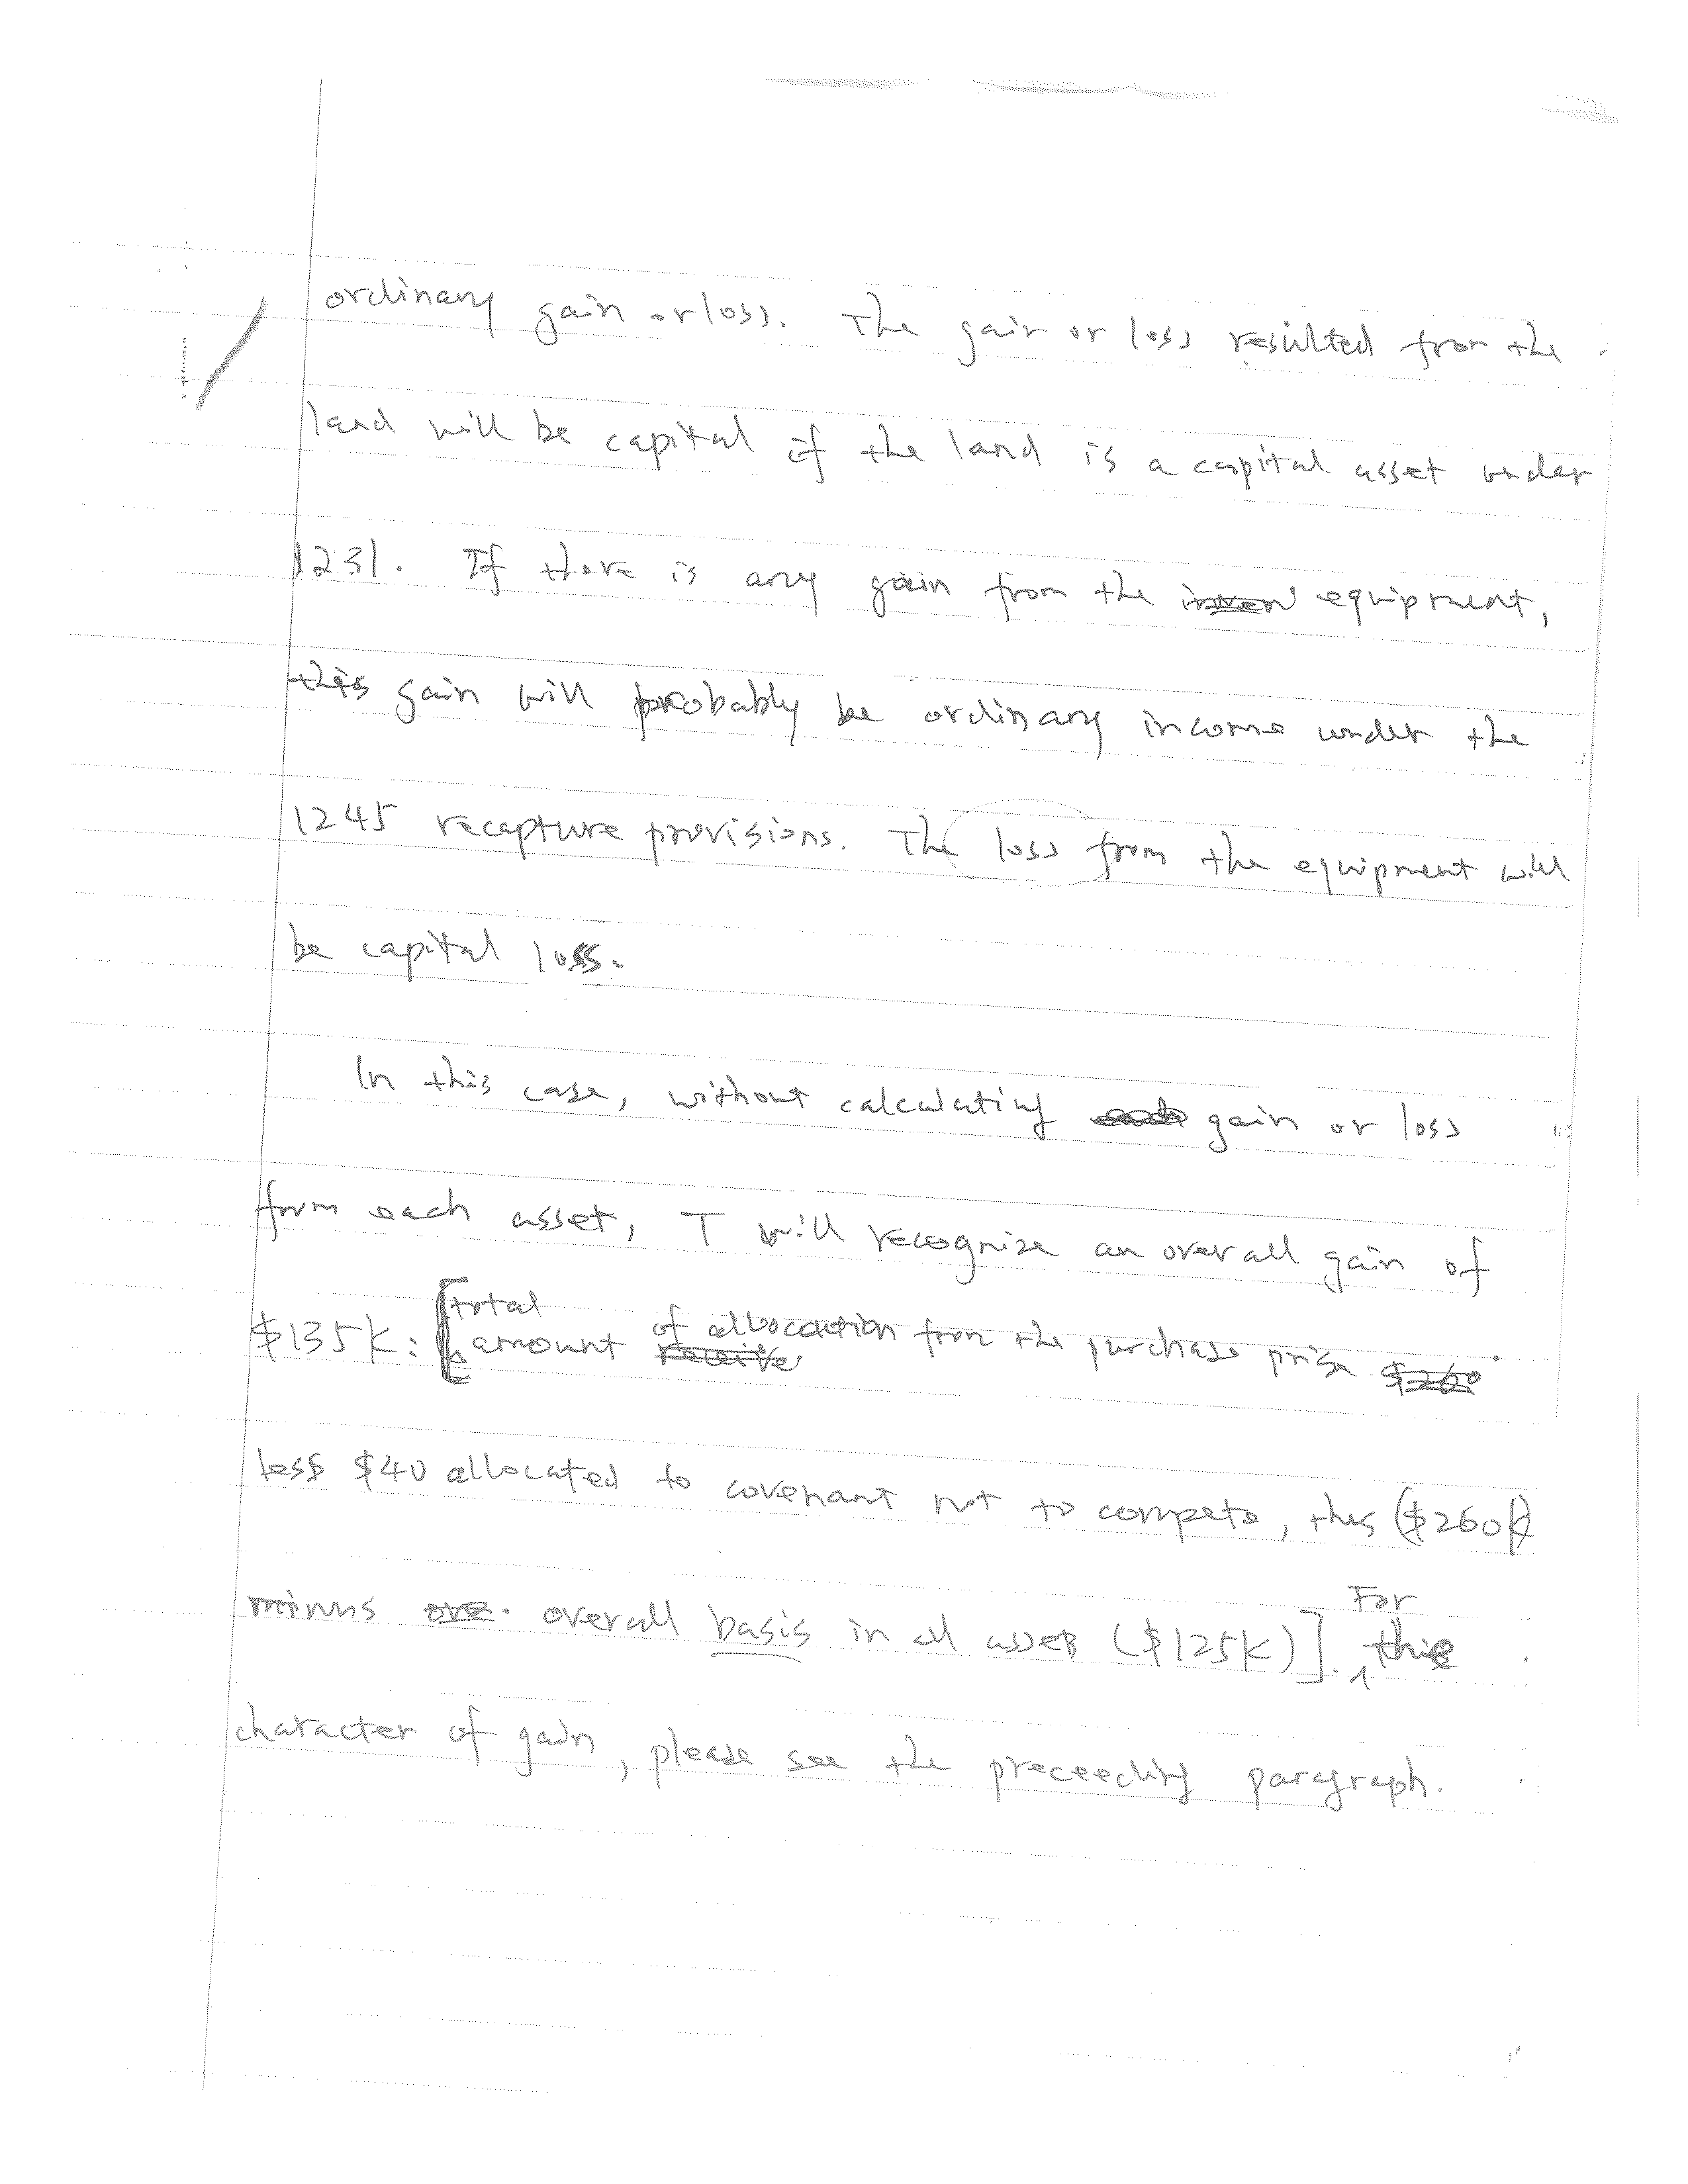 ordinary gain or loss. The gain or loss resulted from the
land will be capital if the land is a capital asset under
1231. If there is any gain from the equipment,
this gain will probably be ordinary income under the
1245 recapture provisions. The loss from the equipment will
be capital loss.
In this case, without calculating gain or loss
from each asset, T will recognize an overall gain of
$135K: [total
amount of allocation from the purchase price
less $40 allocated to covenant not to compete, thus ($260K)
minus overall basis in all assets ($125K)]. For the
character of gain, please see the preceeding paragraph.